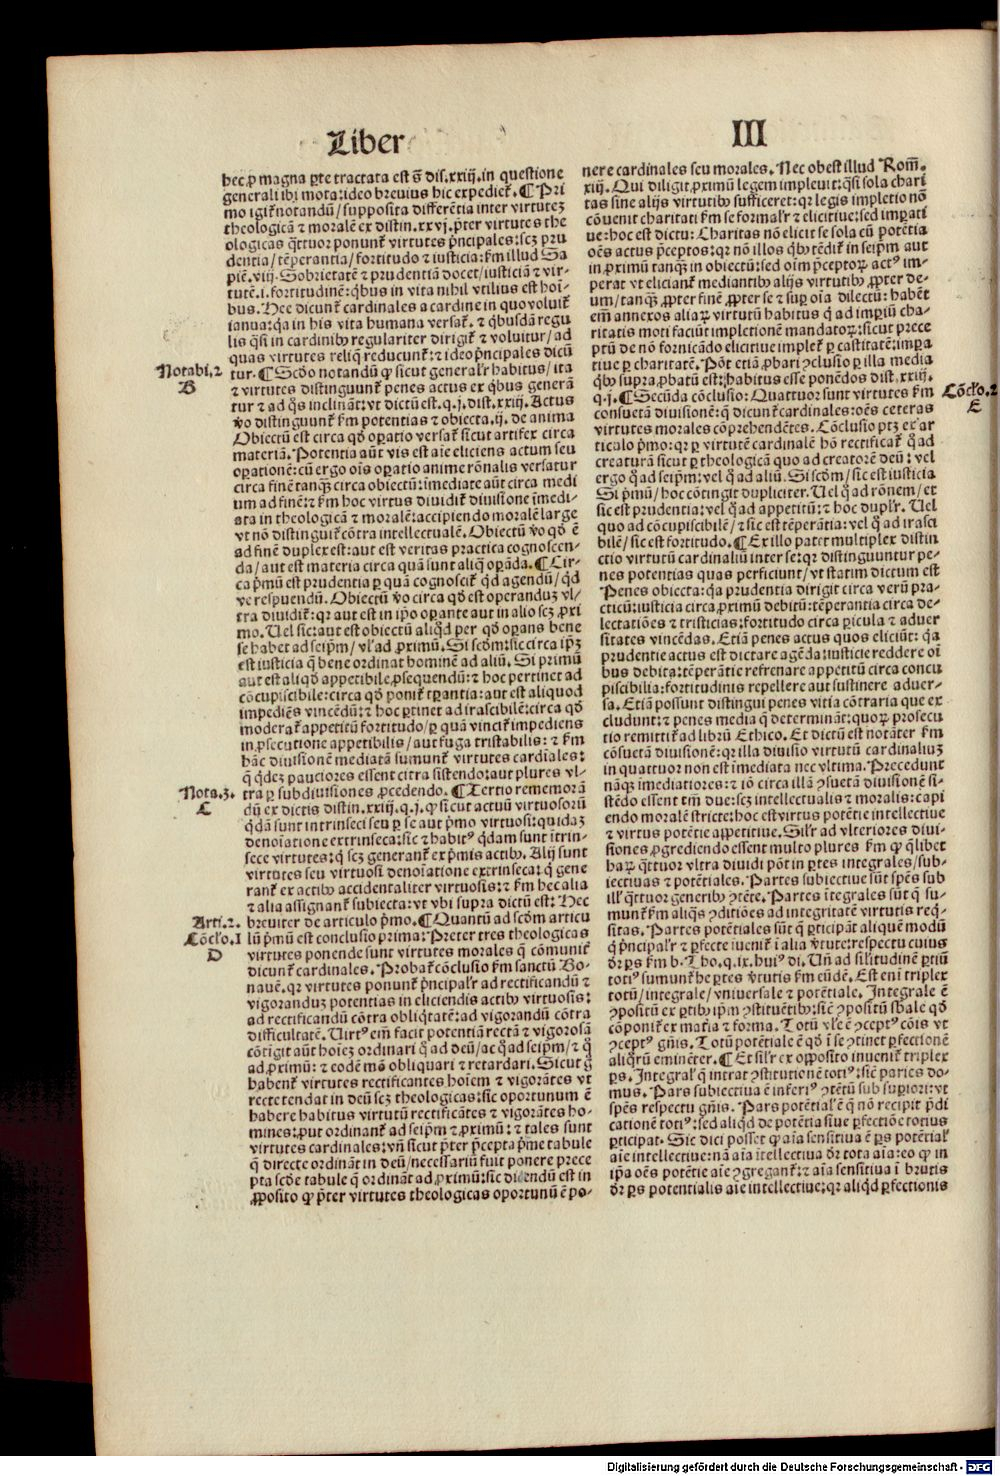 Liber
III
hec, ꝓ magna ꝑte tractata est ſ̄ dis. xxiij. in questione
generali ibi mota: ideo breuius hic expedieť. ¶ Pri
mo igiť notandū / supposita differētia inter virtuteꝫ
theologicā ⁊ moralē ex distin. xxvj. p̄ter virtutes the
ologicas q̈ttuor ponunť virtutes p̄ncipales: scꝫ pru
dentia / tēperantia / fortitudo ⁊ iusticia: ẜm illud Sa
piē. viij. Sobrietatē ⁊ prudentiā docet / iusticiā ⁊ vir-
tutē. i. fortitudinē: q̇bus in vita nihil vtilius est hoī-
bus. Hec dicunť cardinales a cardine in quo voluiť
ianua: q̇a in his vita humana versať. ⁊ q̇busdā regu
lis q̄si in cardinibꝰ regulariter dirigiť ⁊ voluitur / ad
quas virtutes reliq̄ reducunť: ⁊ ideo p̄ncipales dicū
Notabi. 2
B
tur. ¶ Scd̓o notandū ꝙ sicut generalr̓ habitus / ita
⁊ virtutes distinguunť penes actus ex q̇bus generā
tur ⁊ ad q̄s inclināt: vt dictū est. q. j. dist. xxiij. Actus
v̓o distinguunť ẜm potentias ⁊ obiecta. ij. de anima
Obiectū est circa qd̓ oꝑatio versať sicut artifex circa
materiā. Potentia aūt vis est aīe eliciens actum seu
oꝑationē: cū ergo oīs oꝑatio anime rōnalis versatur
circa finē tanqꝫ circa obiectū: īmediate aūt circa medi
um ad finē: ⁊ ẜm hoc virtus diuidiť diuisione īmedi-
ata in theologicā ⁊ moralē: accipiendo moralē large
vt nō distinguiť cōtra intellectualē. Obiectū v̓o qd̓ ē
ad finē duplex est: aut est veritas practica cognoscen-
da / aut est materia circa quā sunt aliq̄ oꝑāda. ¶ Cir-
ca p̄mū est prudentia ꝑ quā cognosciť q̇d agendū / q̇d
ve respuendū. Obiectū v̓o circa qd̓ est operanduꝫ vl-
tra diuidiť: qꝛ aut est in ip̄o oꝑante aut in alio scꝫ ꝓxi
mo. Uel sic: aut est obiectū aliq̇d per qd̓ oꝑans bene
se habet ad seip̄m / vl' ad ꝓximū. Si scd̓m: sic circa ip̄ꝫ
est iusticia q̄ bene ordinat hominē ad aliū. Si primū
aut est aliqd̓ appetibile ꝓsequendū: ⁊ hoc pertinet ad
cōcupiscibile: circa qd̓ poniť tꝑantia: aut est aliquod
impediēs vincēdū: ⁊ hoc ꝑtinet ad irascibilē: circa qd̓
moderať appetitū fortitudo / ꝑ quā vinciť impediens
in ꝓsecutione appetibilis / aut fuga tristabilis: ⁊ ẜm
hāc diuisionē mediatā sumunť virtutes cardīales:
q̄ q̇deꝫ pauciores essent citra sistendo: aut plures vl-
Nota. 3.
C
tra ꝑ subdiuisiones ꝓcedendo. ¶ Tertio rememorā
dū ex dictis distin. xxiij. q. j. ꝙ sicut actuū virtuosorū
q̇dā sunt intrinseci seu ꝑ se aut p̄mo virtuosi: quidaꝫ
denoīatione extrinseca: sic ⁊ habitꝰ q̇dam sunt ītrin-
sece virtutes: q̄ scꝫ generanť ex p̄mis actibꝰ. Alij sunt
virtutes seu virtuosi denoīatione extrinseca: q̄ gene
ranť ex actibꝰ accidentaliter virtuosis: ⁊ ẜm hec alia
⁊ alia assignanť subiecta: vt vbi supra dictū est: Hec
Arti. 2.
breuiter de articulo p̄mo. ¶ Quantū ad scd̓m articu
Cōclo. 1
D
lū p̄mū est conclusio prima: Preter tres theologicas
virtutes ponende sunt virtutes morales q̄ cōmuniť
dicunť cardinales. Probať cōclusio ẜm sanctū Bo-
nauē. qꝛ virtutes ponunť p̄ncipalr̓ ad rectificandū ⁊
vigoranduꝫ potentias in eliciendis actibꝰ virtuosis:
ad rectificandū cōtra obliq̇tatē: ad vigorandū cōtra
difficultatē. Uirtꝰ em̄ facit potentiā rectā ⁊ vigorosā
cōtigit aūt hoieꝫ ordinari q̊ ad deū / ac q̊ ad seip̄m / ⁊ q̊
ad ꝓximū: ⁊ eodē mō obliquari ⁊ retardari. Sicut g̊
habenť virtutes rectificantes hoīem ⁊ vigorātes vt
recte tendat in deū scꝫ theologicas: sic oportunum ē
habere habitus virtutū rectificātes ⁊ vigorātes ho-
mines: ꝓut ordinanť ad seip̄m ⁊ ꝓximū: ⁊ tales sunt
virtutes cardinales: vn̄ sicut p̄ter p̄cepta p̄me tabule
q̄ directe ordināt in deū / necessariū fuit ponere prece
pta scd̓e tabule q̄ ordināt ad ꝓximū: sic dicendū est in
ꝓposito ꝙ p̄ter virtutes theologicas oportunū ē po-
nere cardinales seu morales. Nec obest illud Rom̄.
xiij. Qui diligit ꝓximū legem impleuit: q̄si sola chari
tas sine alijs virtutibꝰ sufficeret: qꝛ legis impletio nō
cōuenit charitati ẜm se formalr̓ ⁊ elicitiue: sed imꝑati
ue: hoc est dictu: Charitas nō elicit se sola cū potētia
oēs actus p̄ceptos: qꝛ nō illos q̇bꝰ tēdiť in seip̄m aut
in ꝓximū tanqꝫ in obiectū: sed oīm p̄ceptoꝝ actꝰ im-
perat vt elicianť mediantibꝰ alijs virtutibꝰ ꝓpter de-
um / tanqꝫ ꝓpter finē ꝓpter se ⁊ suꝑ oīa dilectū: habēt
em̄ annexos aliaꝝ virtutū habitus q̄ ad imꝑiū cha-
ritatis moti faciūt impletionē mandatoꝝ: sicut prece
ptū de nō fornicādo elicitiue impleť ꝑ castitatē: imꝑa
tiue ꝑ charitatē. Pōt etiā ꝓbari ꝯclusio ꝑ illa media
q̇bꝰ supra ꝓbatū est: habitus esse ponēdos dist. xxiij.
Cōclo. 2
E
q. j. ¶ Secūda cōclusio: Quattuor sunt virtutes ẜm
consuetā diuisionē: q̄ dicunť cardinales: oēs ceteras
virtutes morales cōprehendētes. Cōclusio ptꝫ ex ar
ticulo p̄mo: qꝛ ꝑ virtutē cardinalē hō rectificať q̊ ad
creaturā sicut ꝑ theologicā quo ad creatorē deū: vel
ergo q̊ ad seip̄m: vel q̊ ad aliū. Si scd̓m / sic est iusticia
Si p̄mū / hoc cōtingit dupliciter. Uel q̊ ad rōnem / et
sic est prudentia: vel q̊ ad appetitū: ⁊ hoc duplr̓. Uel
quo ad cōcupiscibilē / ⁊ sic est tēperātia: vel q̊ ad irasci
bilē / sic est fortitudo. ¶ Ex illo patet multiplex distin
ctio virtutū cardinaliū inter se: qꝛ distinguuntur pe-
nes potentias quas perficiunt / vt statim dictum est
Penes obiecta: q̇a prudentia dirigit circa verū pra-
cticū: iusticia circa ꝓximū debitū: tēperantia circa de-
lectatiōes ⁊ tristicias: fortitudo circa ꝑicula ⁊ aduer
sitates vincēdas. Etiā penes actus quos eliciūt: q̇a
prudentie actus est dictare agēda: iusticie reddere oī
bus debita: tēperātie refrenare appetitū circa concu
piscibilia: fortitudinis repellere aut sustinere aduer-
sa. Etiā possunt distingui penes vitia cōtraria que ex
cludunt: ⁊ penes media q̄ determināt: quoꝝ prosecu
tio remittiť ad librū Ethico. Et dictū est notāter ẜm
cōsuetā diuisionē: qꝛ illa diuisio virtutū cardinaliuꝫ
in quattuor non est īmediata nec vltima. Precedunt
nāqꝫ īmediatiores: ⁊ iō citra illā ꝯsuetā diuisionē si-
stēdo essent tm̄ due: scꝫ intellectualis ⁊ moralis: capi
endo moralē stricte: hoc est virtus potētie intellectiue
⁊ virtus potētie appetitiue. Silr̓ ad vlteriores diui-
siones ꝓgrediendo essent multo plures ẜm ꝙ q̄libet
haꝝ q̈ttuor vltra diuidi pōt in ꝑtes integrales / sub-
iectiuas ⁊ potētiales. Partes subiectiue sūt spēs sub
ill' q̈ttuor generibꝰ ꝯtēte. Partes ītegrales sūt q̄ su-
munť ẜm aliq̄s ꝯditiōes ad integritatē virtutis req̇-
sitas. Partes potētiales sūt q̄ ꝑticipāt aliquē modū
q̄ p̄ncipalr̓ ⁊ ꝑfecte īueniť ī alia v̓tute: respectu cuius
dr̄ ꝑs ẜm b. Tho. q. ix. huiꝰ di. Un̄ ad sil'itudinē ꝑtiū
totiꝰ sumunť he ꝑtes v̓tutis ẜm eūdē. Est enī triplex
totū / integrale / vniuersale ⁊ potētiale. Integrale ē
ꝯpositū ex ꝑtibꝰ ip̄m ꝯstituētibꝰ: sic̄ ꝯpositū sb̄ale qd̓
cōponiť ex mat̓ia ⁊ forma. Totū vl'e ē ꝯceptꝰ cōis vt
ꝯceptꝰ gn̄is. Totū potētiale ē qd̓ ī se ꝯtinet ꝑfectionē
aliq̊rū eminēter. ¶ Et silr̓ ex opposito inueniť triplex
ꝑs. Integral' q̄ intrat ꝯstitutionē totiꝰ: sic̄ paries do-
mus. Pars subiectiua ē inferiꝰ ꝯtētū sub suꝑiori: vt
spēs respectu gn̄is. Pars potētial' ē q̄ nō recipit p̄di
cationē totiꝰ: sed aliq̇d de potētia siue ꝑfectiōe totius
ꝑticipat. Sic dici posset ꝙ aīa sensitiua ē ꝑs potētial'
aīe intellectiue: nā aīa ītellectiua dr̄ tota aīa: eo ꝙ in
ip̄a oēs potētie aīe ꝯgreganť: ⁊ aīa sensitiua ī brutis
dr̄ ꝑs potentialis aīe intellectiue: qꝛ aliq̇d ꝑfectionis
Digitalisierung gefördert durch die Deutsche Forschungsgemeinschaft - DFG